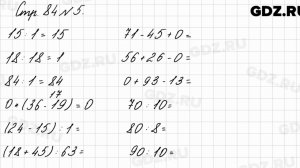 GDZ.RU
Стр. 84 № 5.
15 : 1 = 15
71 - 45 + 0 =
18 : 18 = 1
56 + 26 - 0 =
84 : 1 = 84
0 + 93 - 13 =
17
0 • (36 - 19) = 0
70 : 10 =
(24 - 15) : 1 =
80 : 8 =
(18 + 45) : 63 =
90 : 10 =